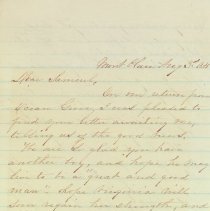 Mont Clair Aug 3
Dear Samuel,
On our return from
Ocean Grove, I was pleased to
find your letter awaiting me,
telling us of the good news.
We are glad you have
another boy, and hope he may
live to be a "great and good
man". Hope Virginia will
soon regain her strength, and